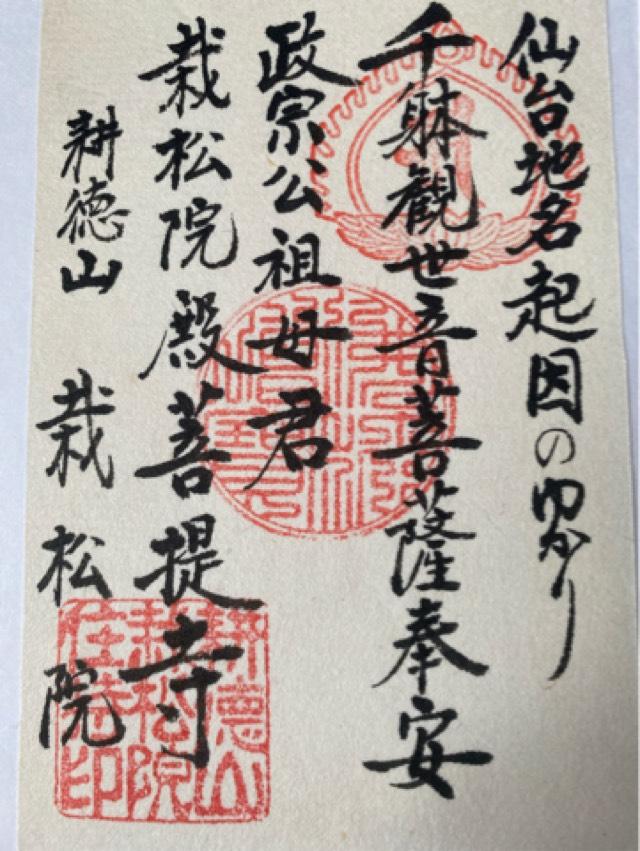 仙台地名起因のゆかり
千躰観世音菩薩奉安
政宗公祖母君
栽松院殿菩提寺
耕徳山 栽松院
耕徳山
栽松院
住寺印